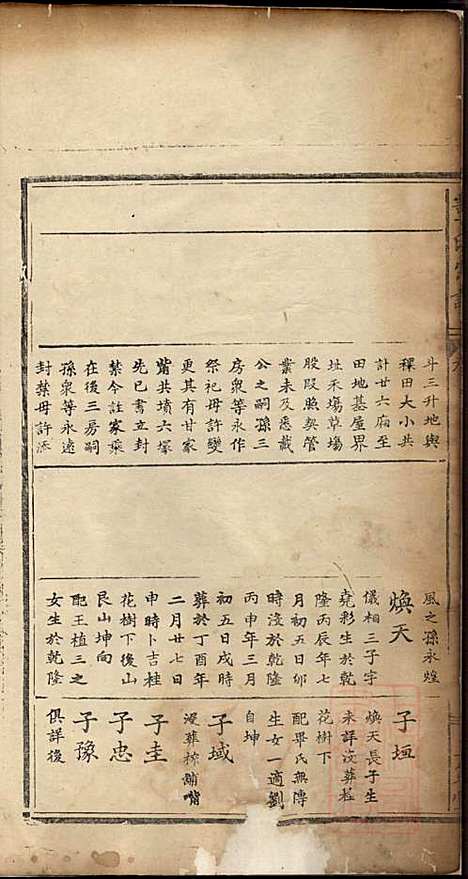 斗三升地與
稞田大小共
計廿六廂至
田地基屋界
址禾塲草塲
股叚照契管
業未及悉載
公之嗣孫三
房衆等永作
祭祀毋許變
更其有甘家
嘴共墳六塚
先已書立封
禁今註家乘
在後三房嗣
孫衆等永遠
封禁毋許添
風之孫永煌
煥天
儀相三子字
堯彩生於乾
隆丙辰年七
月初五日卯
時沒於乾隆
丙申年三月
初五日戌時
葬於丁酉年
二月廿七日
申時卜吉桂
花樹下後山
艮山坤向
配王植三之
女生於乾隆
子垣
煥天長子生
未詳没葬桂
花樹下
配畢氏無傳
生女一適劉
自坤
子域
没葬樟鋪嘴
子圭
子忠
子豫
俱詳後